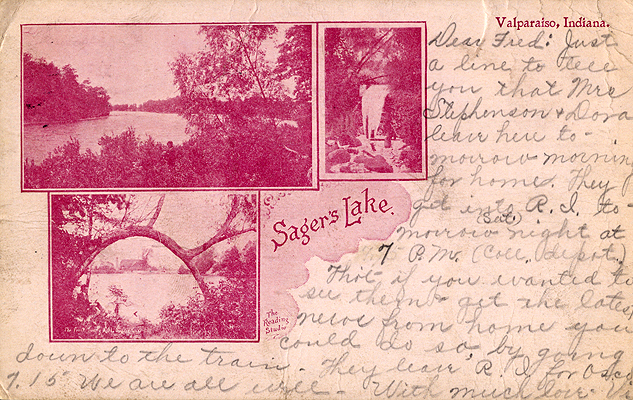 Valparaiso, Indiana.
Dear Fred: Just
a line to tell
you that Mrs
Stephenson & Dora
leave here to-
morrow mornin
for home. They
get into R. I. to-
(Sat)
morrow night at
7 P.M. (Coll. depot.)
Thot if you wanted to
see them & get the lates
news from home you
could do so by going
down to the train. They leave R. I. for
7.15 We are all well - With much love.
Sager's Lake.
The
Reading
Studio